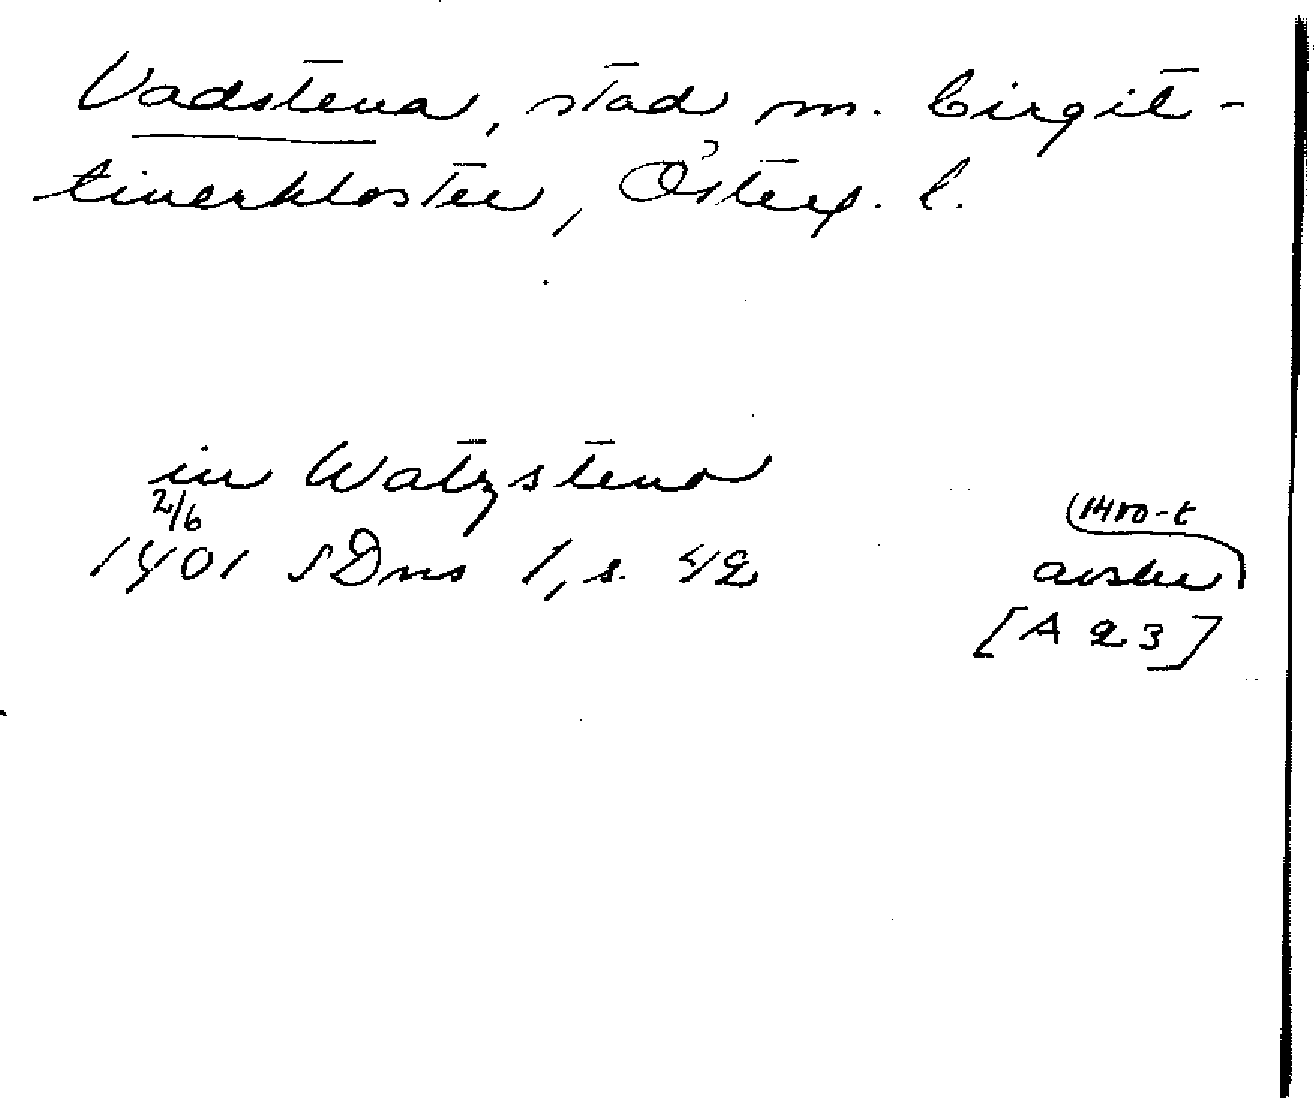 Vadstena, stad m. birgit-
tinerkloster, Österg. l.
in Watzstena
2/6
1401 SDns 1, s. 42
1400-t
avskr
[A 23]